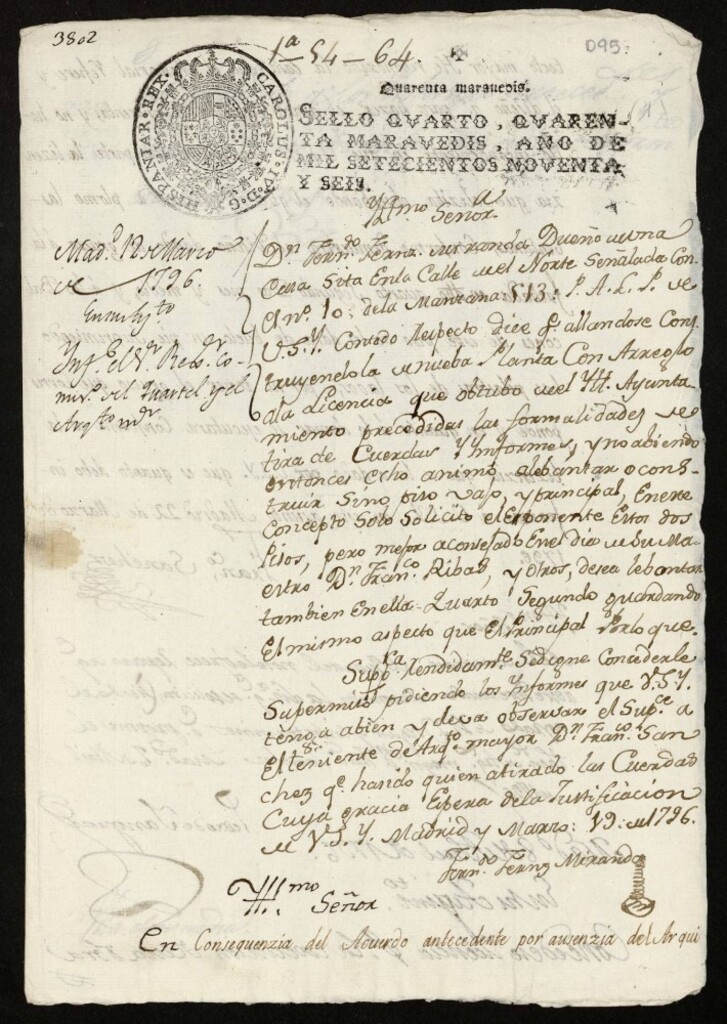 3802
1ª-54-64.
D95
HISPANIAR. REX. CAROLUS. IV. D. G.
Quarenta maravedis.
SELLO QVARTO, QVAREN-
TA MARAVEDIS, AÑO DE
MIL SETECIENTOS NOVENTA
Y SEIS.
Yllmo Señor
Madd. 12 de Marzo
de 1796.
En su Ayto
Infe. el Sr. Regr. Co-
misº. del Quartel y el
Arqto mr
Dn. Ferndo. Fernz. Miranda Dueño de una
Casa Sita En la Calle del Norte Señalada Con
El nº. 10: de la Manzana: 513: P. A. L. P. de
V.S.Y. Con todo Respecto dice qe. allandose Cons
truyendo la de nueba Planta Con Arreglo
a la licencia que obtubo del Yll. Ayunta-
miento precedidas las formalidades de
tira de Cuerdas Y Ynformes, y no abiendo
entonces Echo animo, alebantar o cons-
truir Sino piso vajo, y principal, En ese
Concepto Solo Solicito el Exponente Estos dos
Pisos, pero mejor aconsejado En el dia de su Ma-
estro Dn. Franco. Ribas, y otros, desea lebantar
tambien En ella Quarto Segundo guardando
El mismo aspecto que El Principal Por lo que.
Suppca. Rendidamte. Se digne Concederle
Su permiso pidiendo los Ynformes que V.S.Y.
tenga a bien y deva observar el Supte. a
El teniente de Arqto. mayor Dn. Franco. San
chez qe. ha sido quien a tirado las Cuerdas
Cuya gracia Espera de la Justificacion
de V.S.Y. Madrid y Marzo: 19: de 1796.
Fern.do Fernz Miranda
Yllmo
Señor
En Consequenzia del Acuerdo antecedente por ausenzia del Arqui